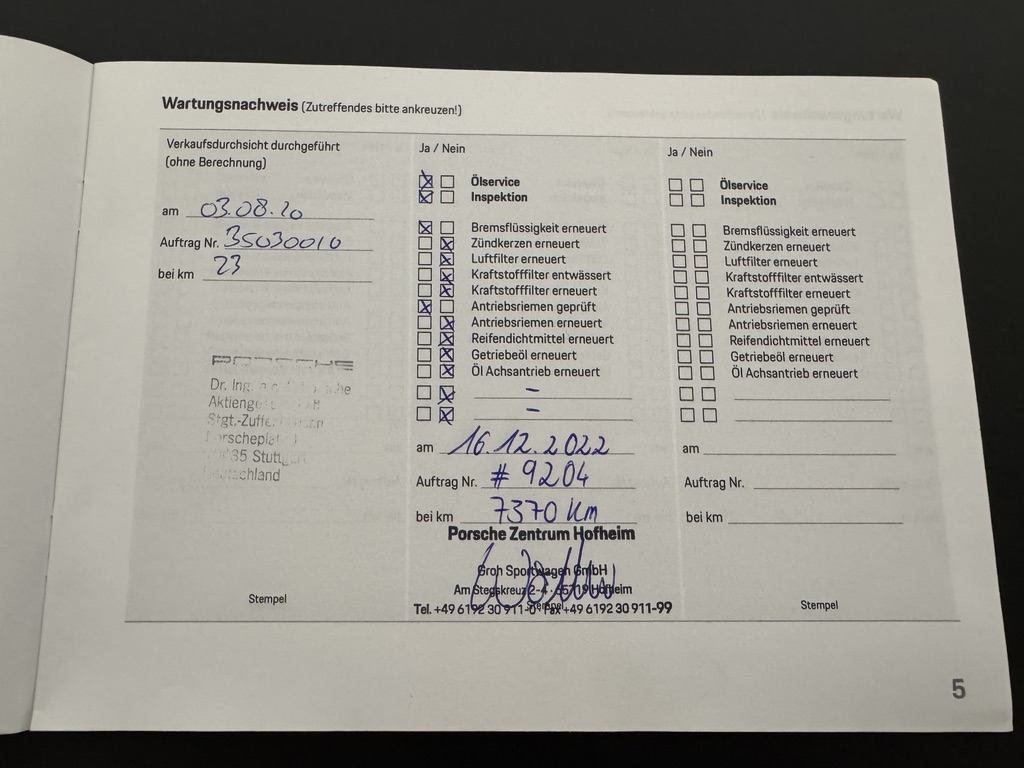 Wartungsnachweis (Zutreffendes bitte ankreuzen!)
Verkaufsdurchsicht durchgeführt
(ohne Berechnung)
am 03.08.20
Auftrag Nr. 35030010
bei km 23
PORSCHE
Dr. Ing.
Stgt.-Zuffe
Stuttg
Stempel
Ja / Nein
Ölservice
Inspektion
Bremsflüssigkeit erneuert
Zündkerzen erneuert
Luftfilter erneuert
Kraftstofffilter entwässert
Kraftstofffilter erneuert
Antriebsriemen geprüft
Antriebsriemen erneuert
Reifendichtmittel erneuert
Getriebeöl erneuert
Öl Achsantrieb erneuert
–
–
am 16.12.2022
Auftrag Nr. # 9204
bei km 7370 km
Porsche Zentrum Hofheim
Groh Sportwagen GmbH
Am Stegskreuz 2-4 · 65719 Hofheim
Tel. +49 6192 30 911-0 · Fax +49 6192 30 911-99
Stempel
Ja / Nein
Ölservice
Inspektion
Bremsflüssigkeit erneuert
Zündkerzen erneuert
Luftfilter erneuert
Kraftstofffilter entwässert
Kraftstofffilter erneuert
Antriebsriemen geprüft
Antriebsriemen erneuert
Reifendichtmittel erneuert
Getriebeöl erneuert
Öl Achsantrieb erneuert
am
Auftrag Nr.
bei km
Stempel
5